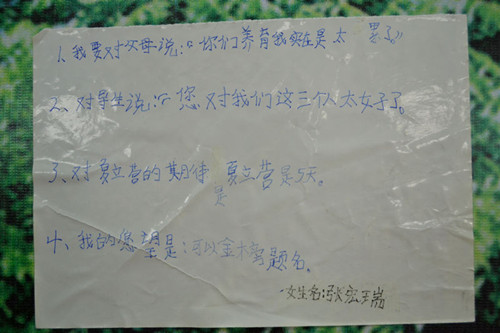 1、我要对父母说:“你们养育我实在是太 累了。”
2、对导生说:“您对我们这三个人太好了。
3、对夏立营的期待 夏立营是5天。
是
4、我的愿望是:可以金榜题名。
女生名:张宏瑞